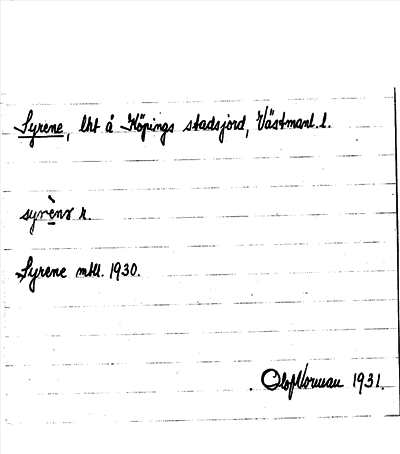 Syrene, lht å Köpings stadsjord, Västmanl. l.
syrèns r.
Syrene mtll. 1930.
Olof Norman 1931.